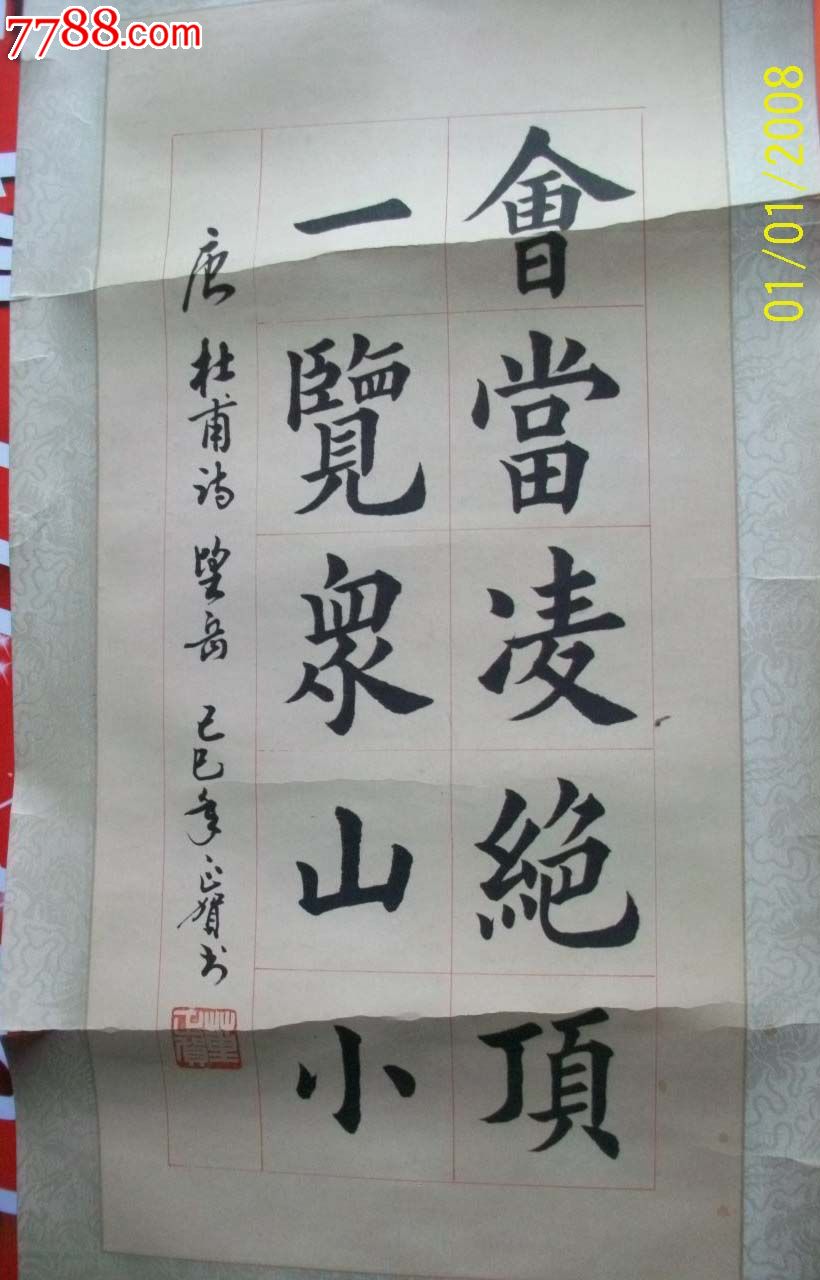 7788.com
01/01/2008
會當凌絕頂
一覽眾山小
唐 杜甫诗 望岳 己巳年 正賢书